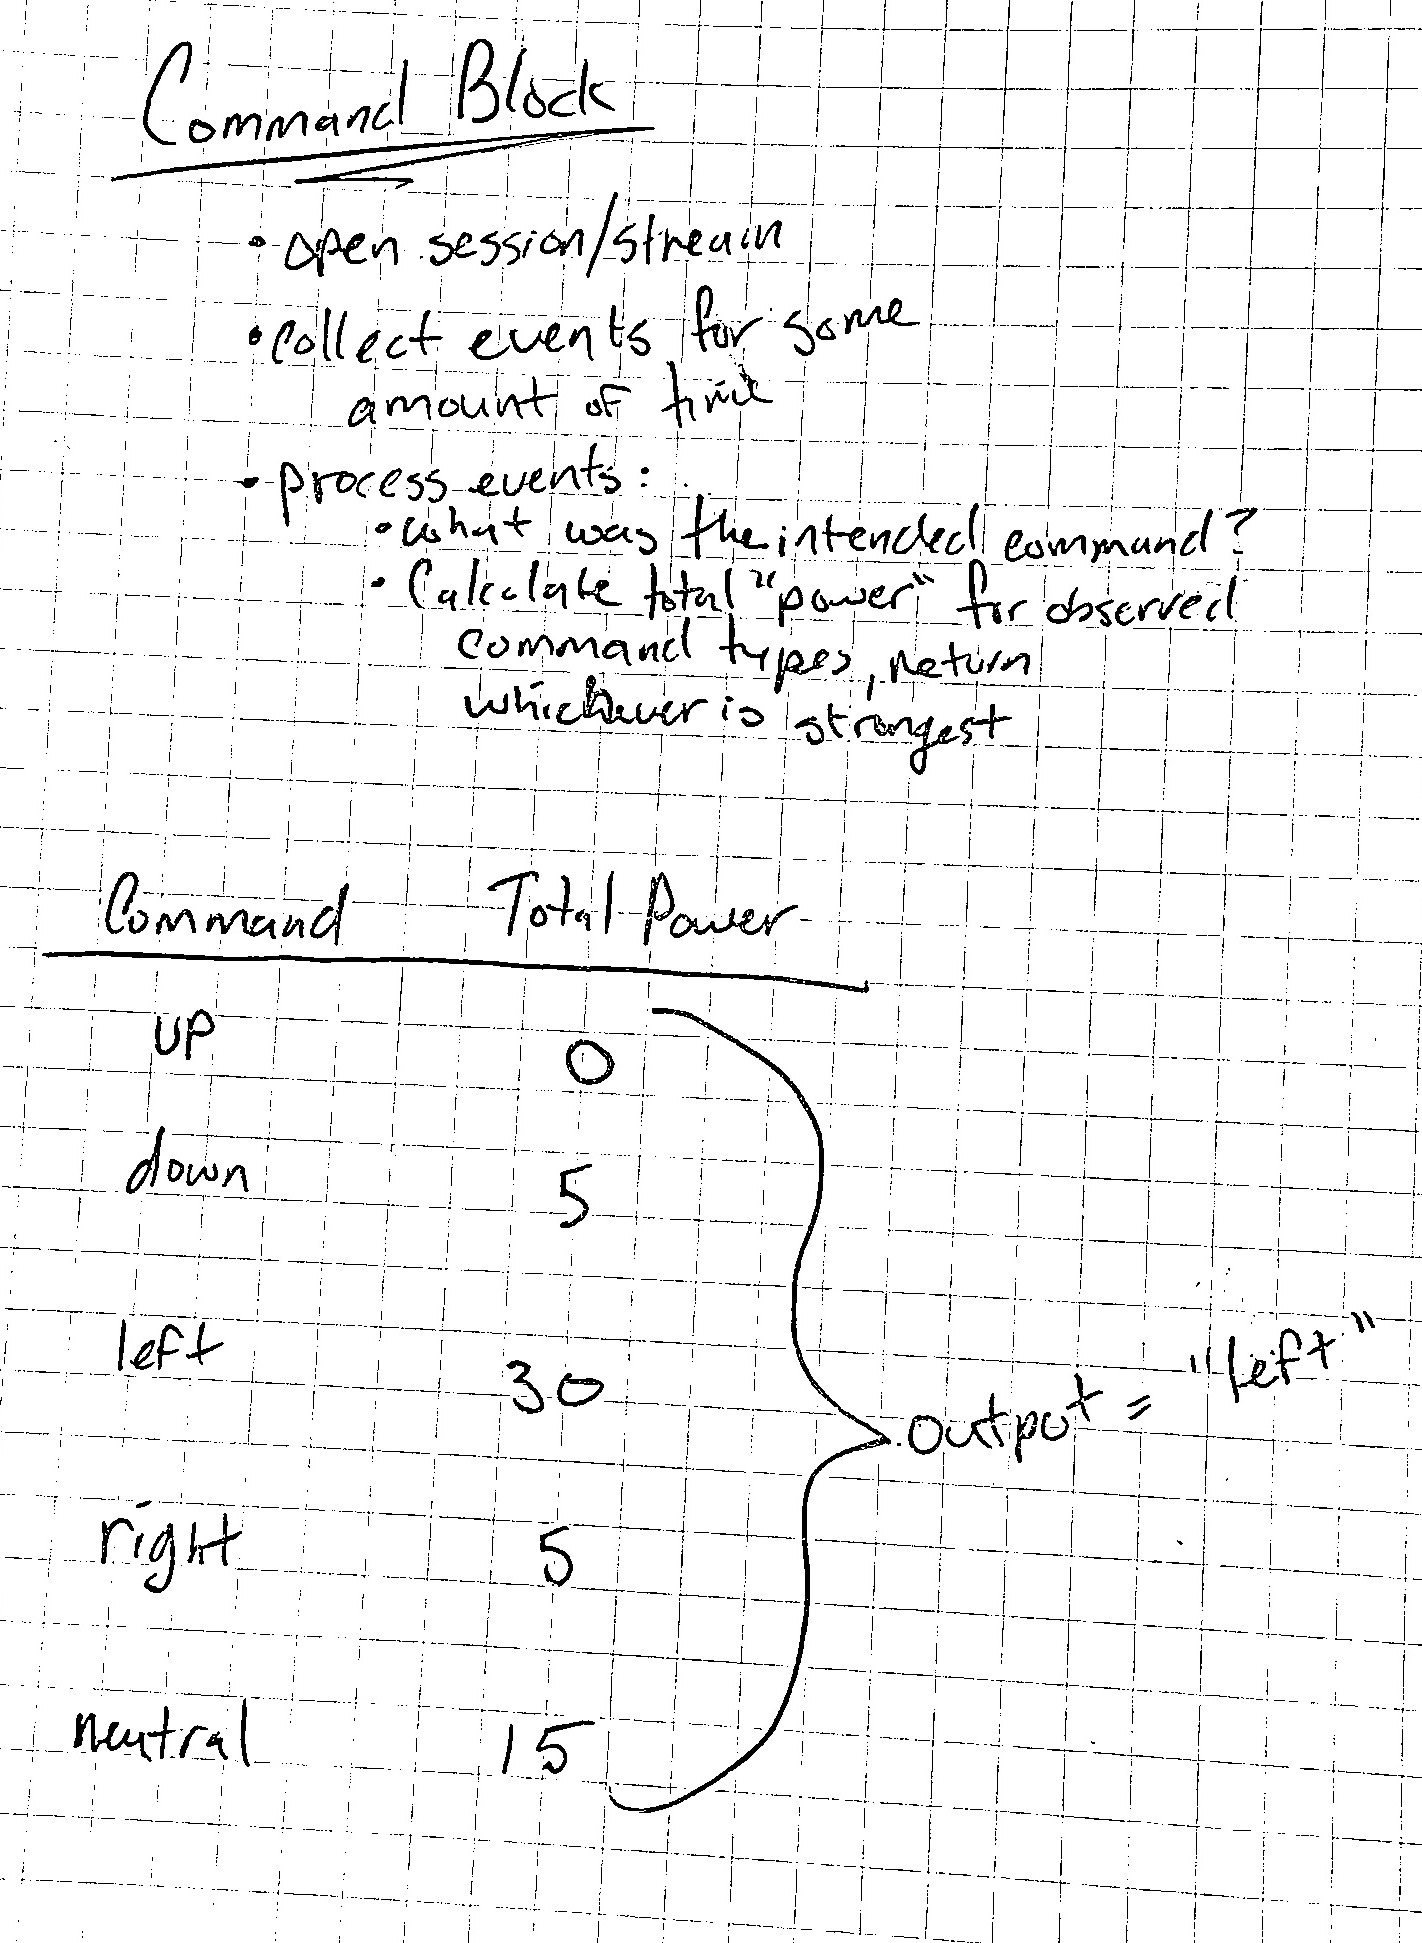 Command Block
• open session/stream
• collect events for some
amount of time
• process events:
• what was the intended command?
• Calculate total "power" for observed
command types, return
whichever is strongest
Command Total Power
up 0
down 5
left 30
output = "left"
right 5
neutral 15